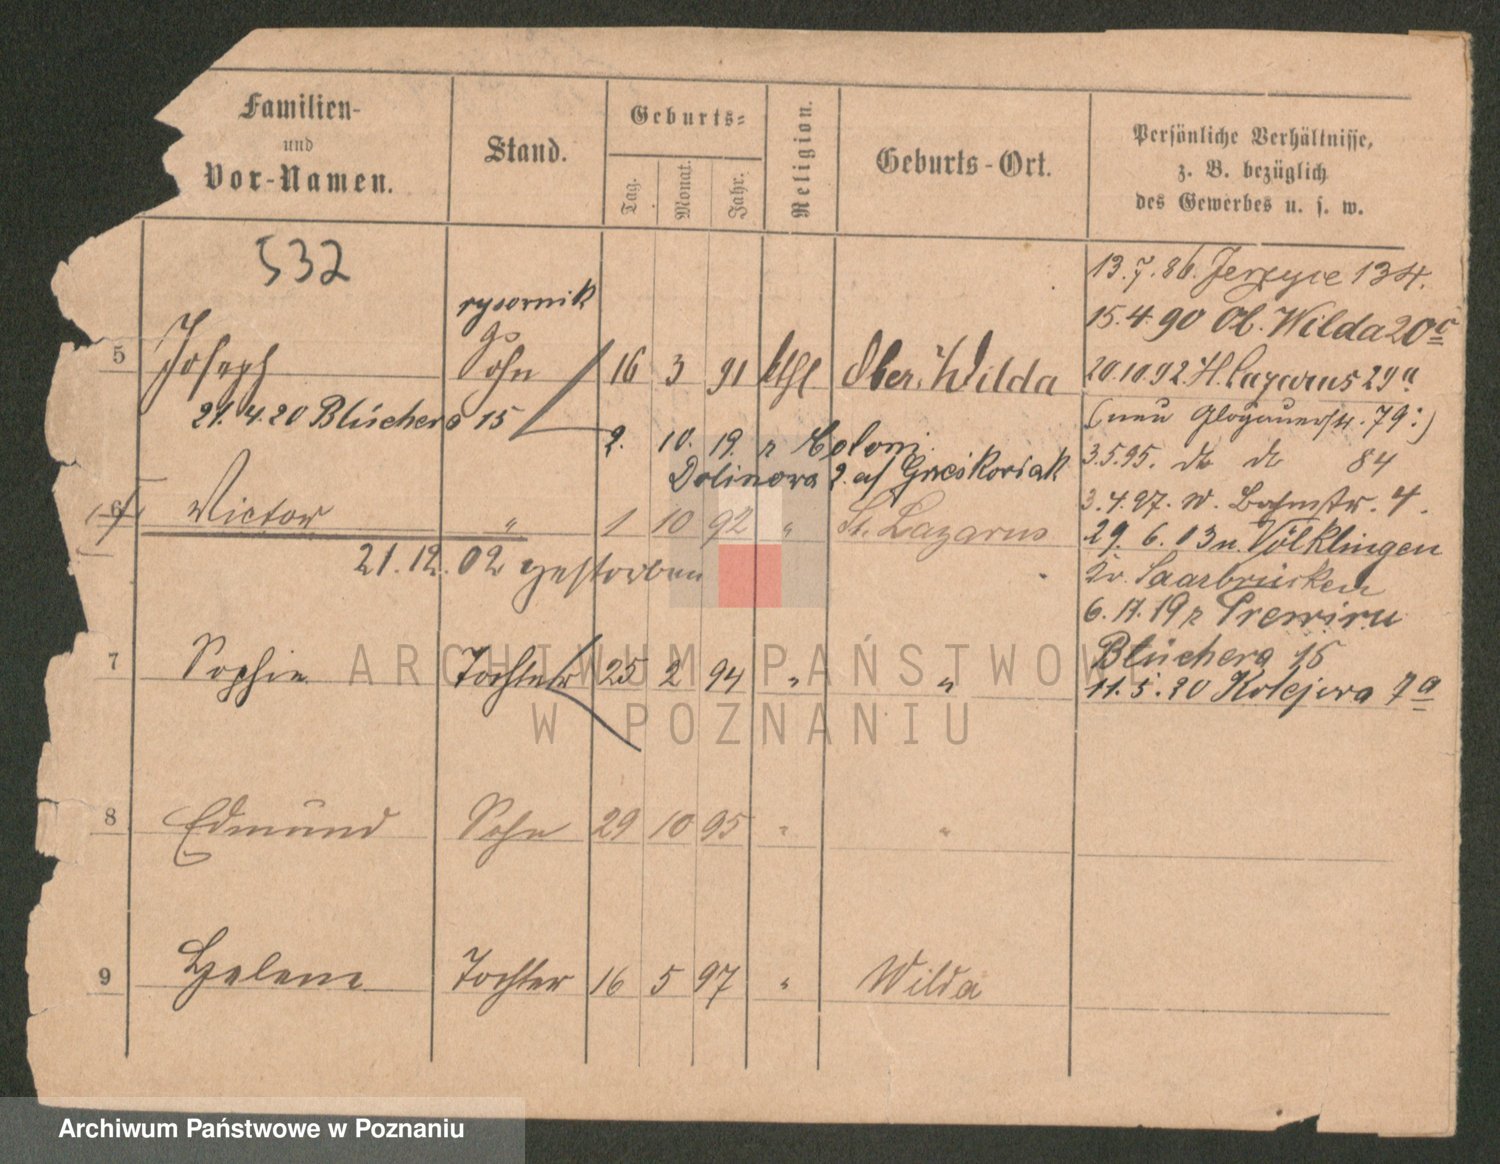 Familien-
und
Vor-Namen.
Stand.
Geburts=
Tag.
Monat.
Jahr.
Religion.
Geburts-Ort.
Persönliche Verhältnisse,
z. B. bezüglich
des Gewerbes u. s. w.
532
13.7.86. Jerzyce 134.
15.4.90 Ob. Wilda 20c
rysownik
5 Joseph Sohn 16 3 91 kthl Ober-Wilda
20.10.92. St. Lazarus 29a
21.4.20 Blüchera 15
(neu Glogauerstr. 79:)
2. 10. 19. z
Dolinowa 2.
3.5.95. do do 84
6 Victor " 1 10 92 " St. Lazarus
3.4.97. W. 4.
21.12.02 gestorben
29. 6. 03 n. Völklingen
Kr. Saarbrücken
6.11.19 z
7 Sophie Tochter 25 2 94 " "
Blüchera 15
11.5.20 Kolejowa 7a
8 Edmund Sohn 29 10 95 " "
9 Helene Tochter 16 5 97 " Wilda
ARCHIWUM PAŃSTWOWE
W POZNANIU
Archiwum Państwowe w Poznaniu